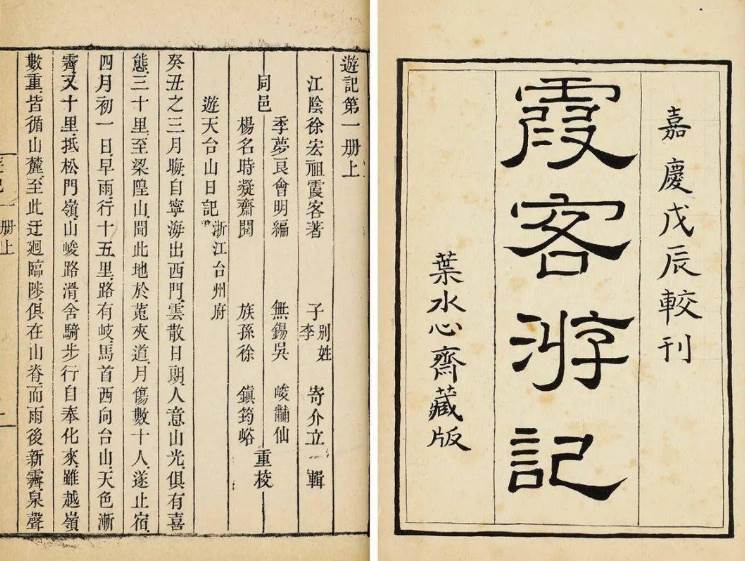 嘉慶戊辰較刊
霞客游記
葉水心齋藏版
遊記第一册上
江陰徐宏祖霞客著 子 別姓李 寄介立 輯
同邑
季夢良會明編 無錫吳 峻黼仙
楊名時凝齋閱 族孫徐 鎮筠峪
重校
遊天台山日記 浙江台州府
癸丑之三月晦自寧海出西門雲散日朗人意山光俱有喜
態三十里至梁隍山聞此地於菟夾道月傷數十人遂止宿
四月初一日早雨行十五里路有岐馬首西向台山天色漸
霽又十里抵松門嶺山峻路滑舍騎步行自奉化來雖越嶺
數重皆循山麓至此迂廻臨陟俱在山脊而雨後新霽泉聲
册上